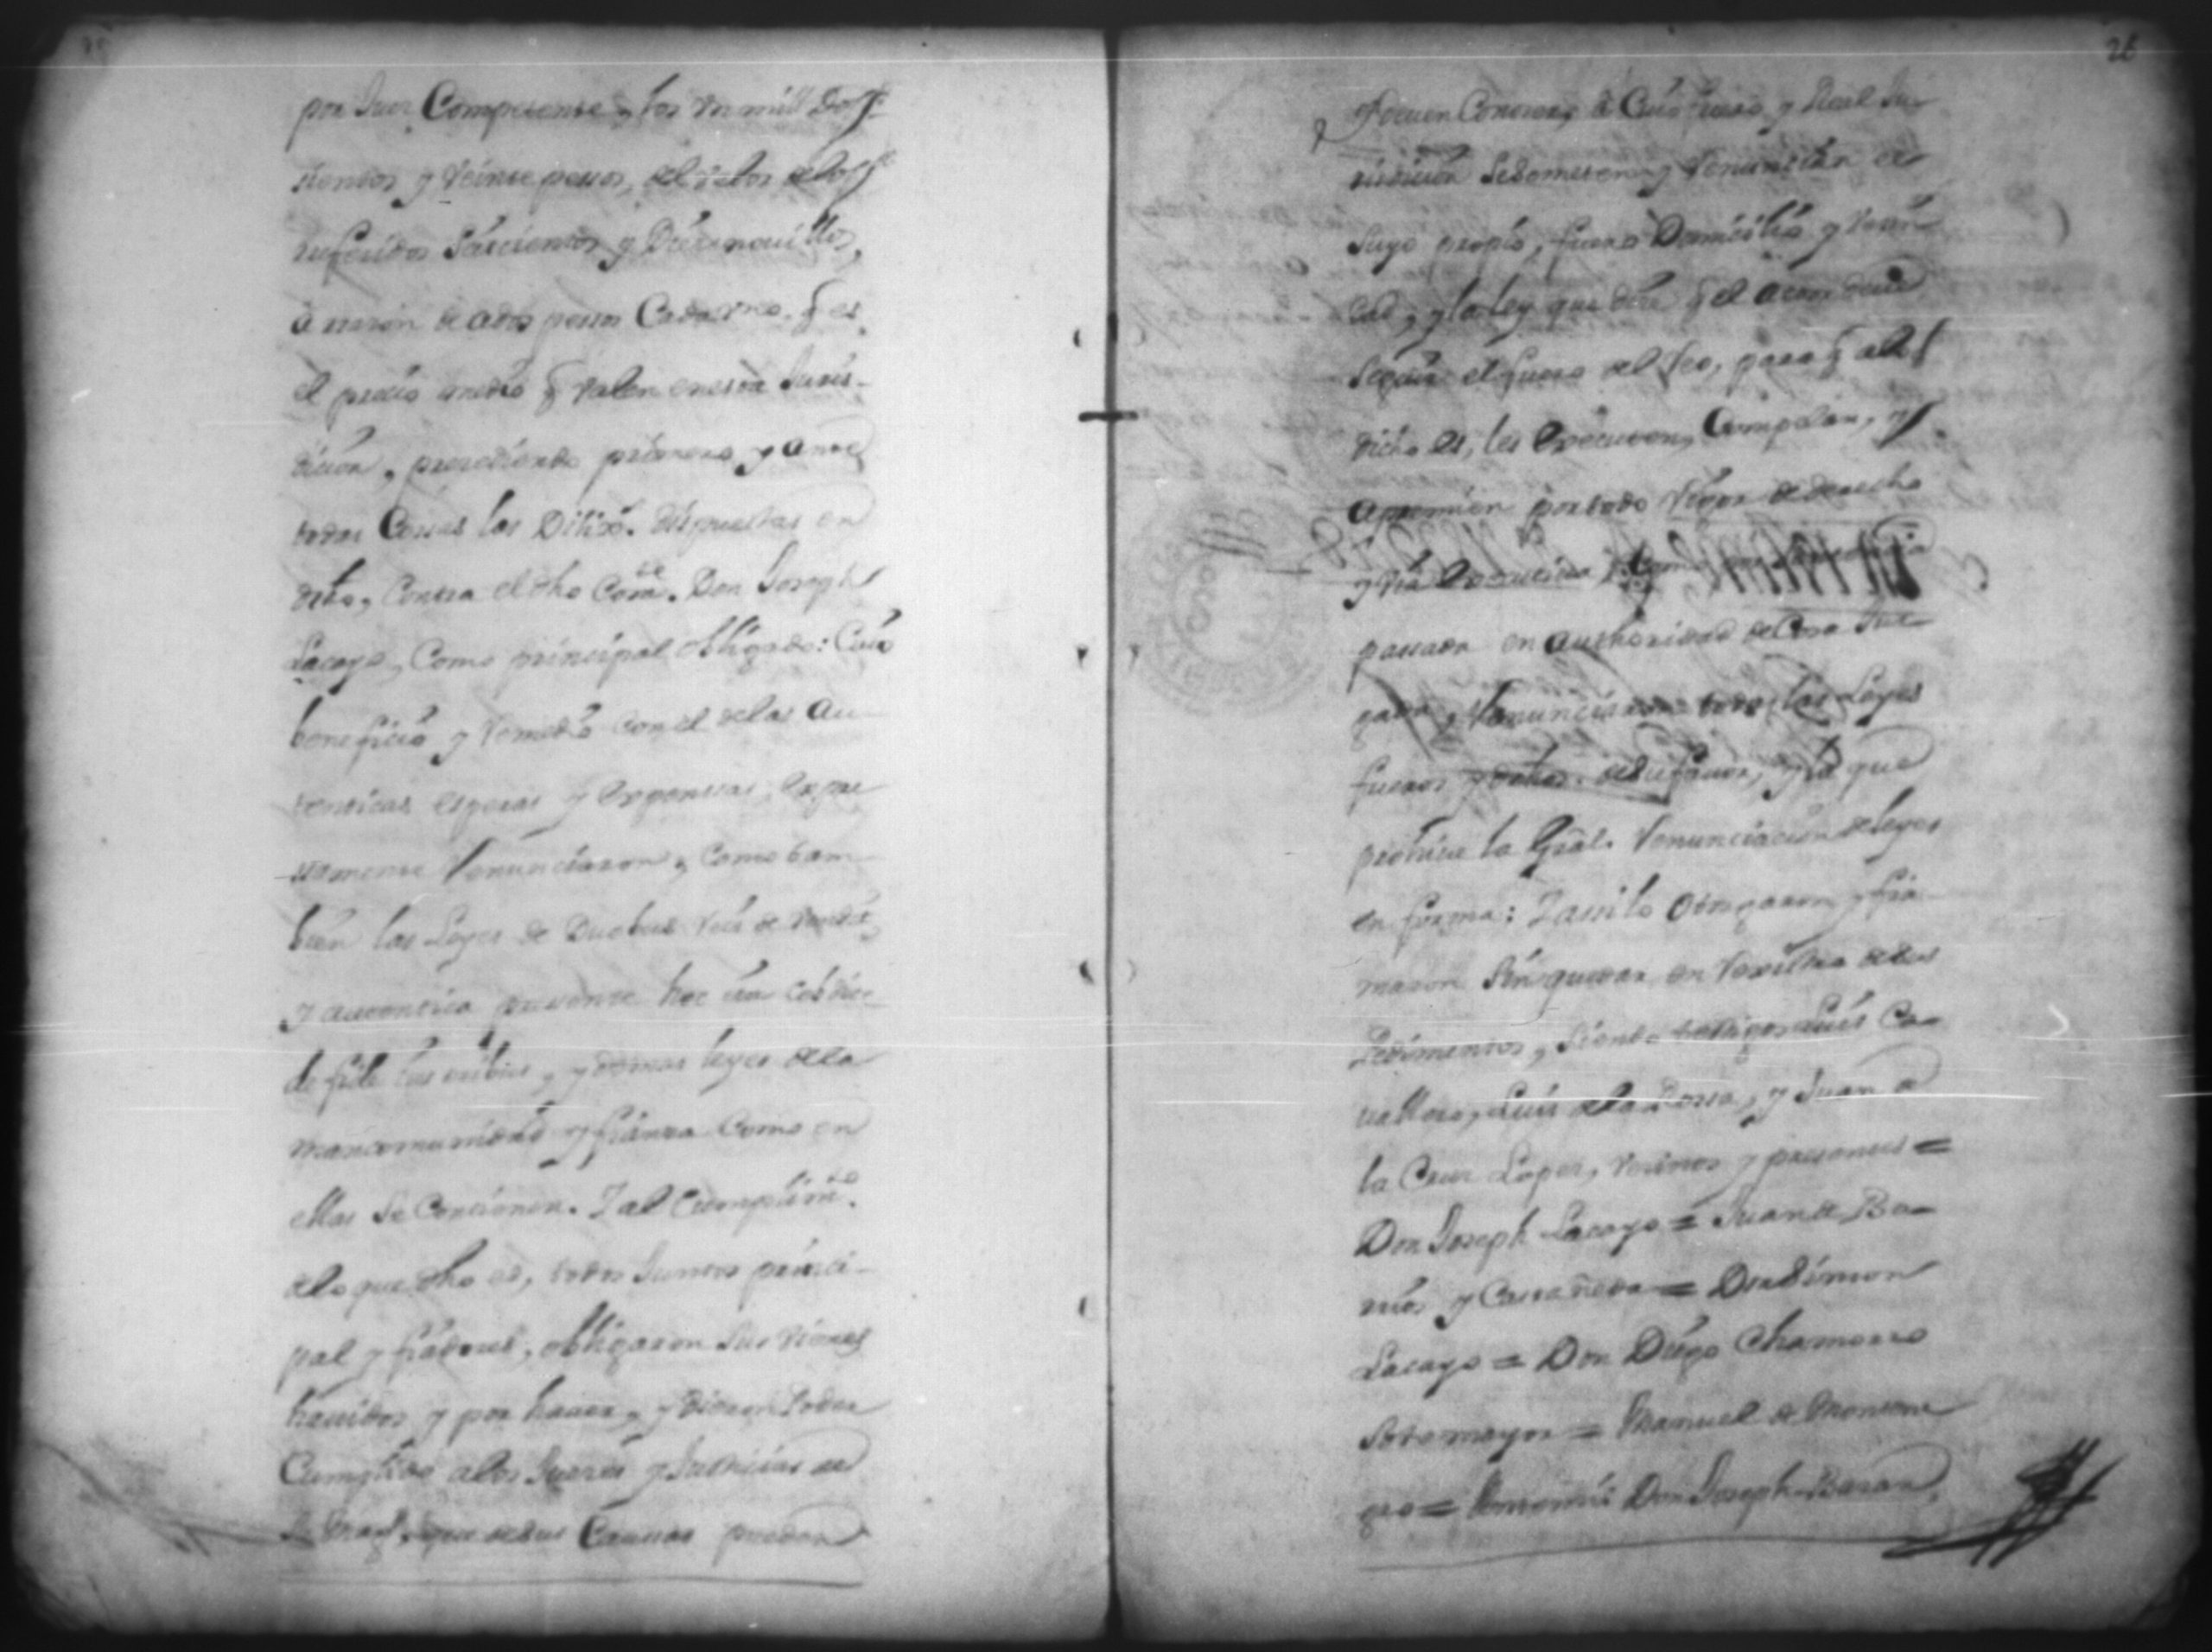 por Juez Competente, los un mill Dos
sientos y Veinte pesos, del valor delos
referidos Seiscientos y Diez novillos,
a razon de ados pesos Cada uno. q es
el precio medio q Valen en esta Juris-
dicion, precediendo primero y ante
todas Cossas las Dilixs. dispuestas en
dro, Contra el dho Come. Don Joseph
Lacayo, Como principal obligado: Cuio
beneficio y remedio con el delas Au-
tenticas esperas y Expensas, Expre
samente Renunciaron, Como tam-
bien las Leyes de Duobus reis de
y autentica presente hoc ita
de fide iusoribus, y demas leyes dela
mancomunidad y fianza Como en
ellas Se Contienen. Y al Cumplimto.
alo que dho es, todos Juntos princi-
pal y fiadores, obligaron Sus vienes
havidos y por haver, y dieron Poder
Cumplido alos Jueses y Justicias de
Su Magd. que desus Caussas puedan
26
y devan Conoser, a Cuio fuero y Real Ju-
risdicion Se Someten y renuncian el
suyo propio, fuero Domicilio y Vecin
dad, y la ley que dize q el actor deve
Seguir el fuero del Reo, para q alo
dicho es, les Executen, Compelan, y
apremien por todo rigor de derecho
y via Executiva,
passada en authoridad de Cosa Jus-
gada, Renunciaron todas las Leyes
fueros y drechos. desu favor, y la que
prohive la Gral. renunciacion de leyes
en forma: Y assi lo otorgaron y fir-
maron Sin quedar en rexistro desus
Pedimentos, Siendo testigos Luis Ca-
vallero, Luis dela Rossa, y Juan de
la Cruz Lopez, Vecinos y presentes =
Don Joseph Lacayo = Juan de Ba-
rrios y Castañeda = Don Simon
Lacayo = Don Diego Chamorro
Sotomayor = Manuel de Montene
gro = Antemi: Don Joseph